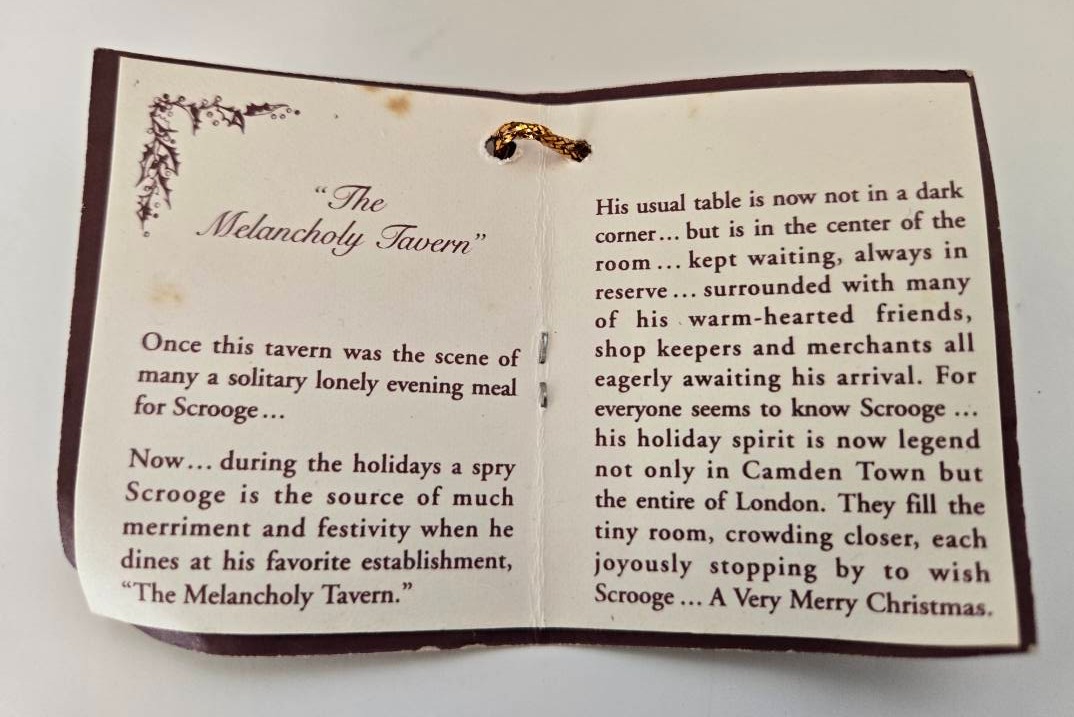 “The
Melancholy Tavern”
Once this tavern was the scene of
many a solitary lonely evening meal
for Scrooge...
Now... during the holidays a spry
Scrooge is the source of much
merriment and festivity when he
dines at his favorite establishment,
“The Melancholy Tavern.”
His usual table is now not in a dark
corner... but is in the center of the
room ... kept waiting, always in
reserve ... surrounded with many
of his warm-hearted friends,
shop keepers and merchants all
eagerly awaiting his arrival. For
everyone seems to know Scrooge ...
his holiday spirit is now legend
not only in Camden Town but
the entire of London. They fill the
tiny room, crowding closer, each
joyously stopping by to wish
Scrooge ... A Very Merry Christmas.